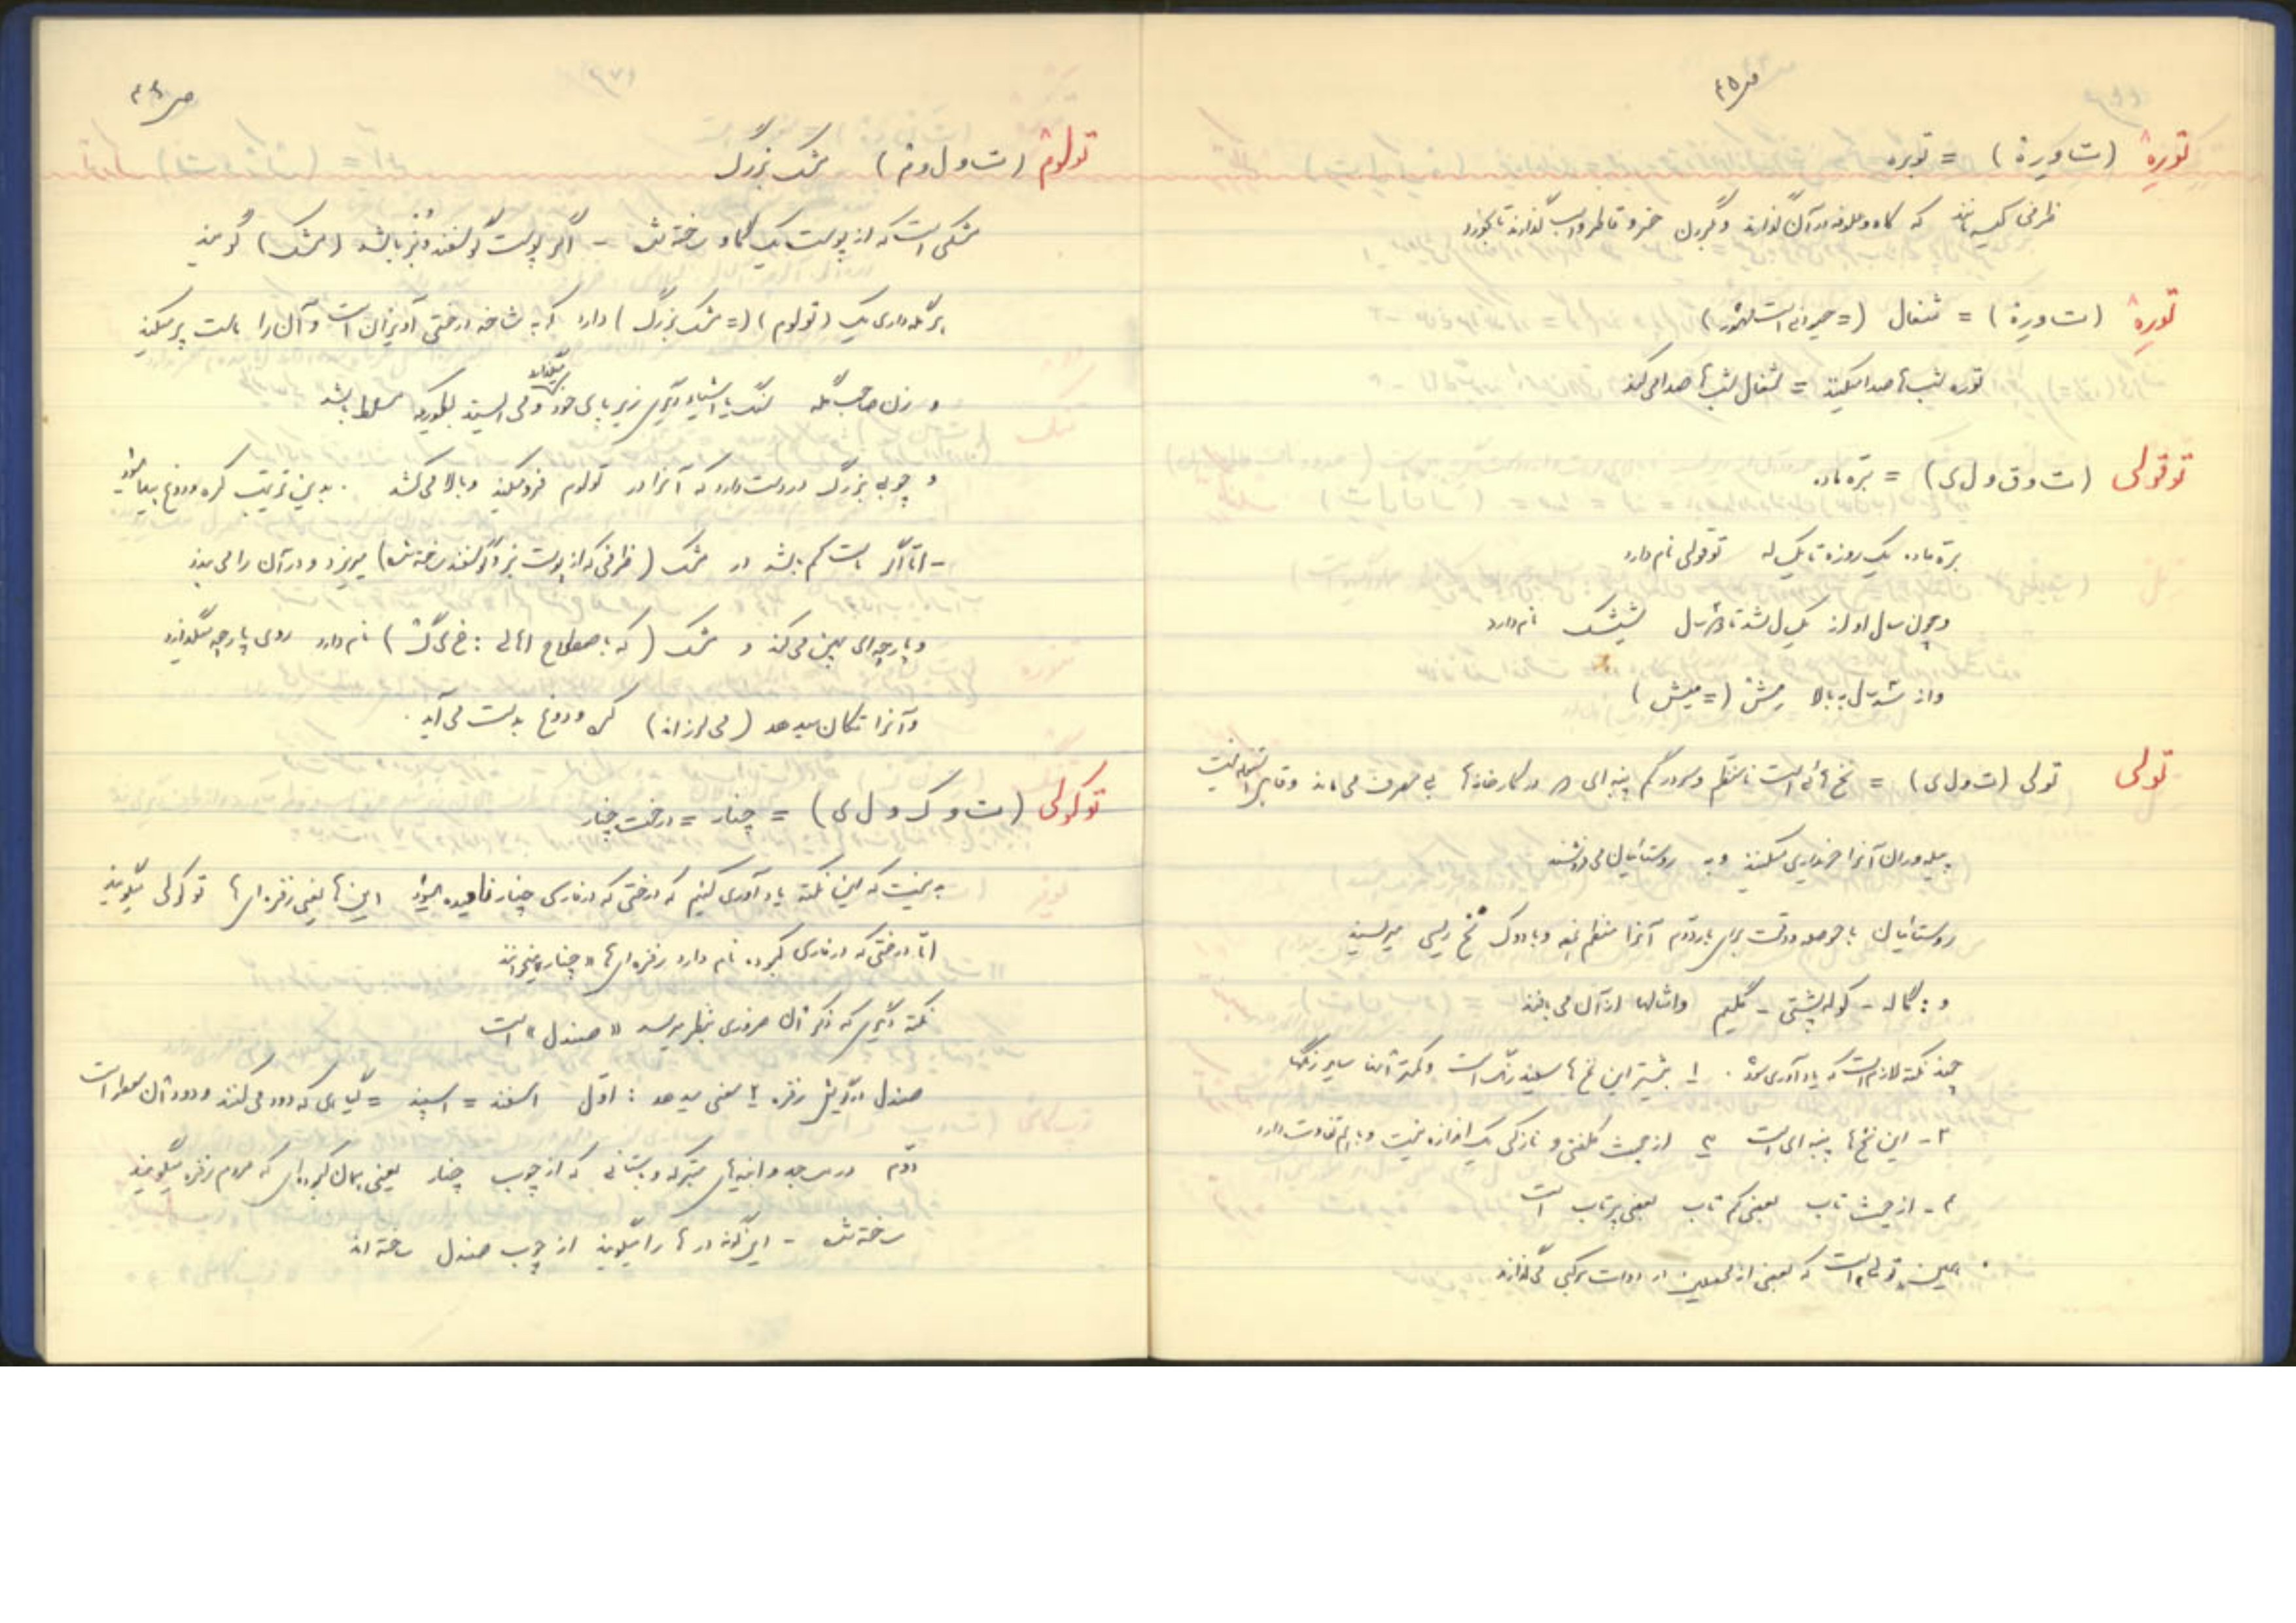 ص ۴۵
تورهٔ (ت‌ا‌و‌رهٔ) = توبره
ظرفی کیسه مانند که کاه و علوفه در آن گذارند و گردن خر و قاطر و اسب گذارند تا بخورد
تورهٔ (ت‌ا‌و‌رهٔ) = شغال (= حیوانی است مشهور)
توره شب‌ها صدا میکند = شغال شب‌ها صدا می‌کند
توقولی (ت و ق و ل ی) = برّه ماده
برّه ماده یک روزه تا یک‌ساله توقولی نام دارد
و چون سال او از یکسال شد تا دو سال شیشک نام دارد
و از سه سال به بالا مِشْ (= میش)
تولی تولی (ت و ل ی) = نخ‌هائی است نامنظم و سردرگم پنبه‌ای در کارخانه‌ها بی مصرف می‌ماند و قابل استفاده نیست
پیله‌وران آنرا خریداری میکنند و به روستائیان می‌فروشند
روستائیان با حوصله و دقت آنرا منظم و با دوک نخ ریسی میریسند
و: گاله - کوله پشتی - گلیم و امثالها از آن می بافند
چند نکته لازم است که یادآوری شود. ۱ـ بیشتر این نخ‌ها سفید رنگ است و کمتر سایر رنگها
۲- این نخ‌ها پنبه‌ای است ۳ـ از حیث کلفتی و نازکی یک اندازه نیست و با هم تفاوت دارد
۴- از حیث تاب بعضی کم تاب بعضی پرتاب است
همین تولی است که بعضی از در ادوات برکی می‌گذارند
ص ۴۶
تولوم (ت و ل و م) مشک بزرگ
مشکی است که از پوست یک گاو ساخته شده - اگر پوست گوسفند و بز باشد (مشک) گویند
هر گله‌داری یک (تولوم) (= مشک بزرگ) دارد که به شاخه درختی آویزان است و آن را ماست پر میکند
و زن صاحب گله سنگ یا اشیاء دیگری زیر پای خود میگذارد و می ایستد بطوریکه مسلط باشد
و چوبی بزرگ در دست دارد که آنرا در تولوم فرو میکند و بالا می‌کشد. بدین ترتیب کره و دوغ پیدا شود
- امّا اگر ماست کم باشد در مشک (ظرفی که از پوست بز و گوسفند ساخته شده) میریزد و در آن را می بندد
و پارچه‌ای پهن می‌کند و مشک (که باصطلاح اهالی: خ ی گ) نام دارد روی پارچه میگذارد
و آنرا تکان میدهد (می لرزاند) کره و دوغ بدست می آید.
توکولی (ت و ک و ل ی) = چنار = درخت چنار
بد نیست که این نکته یادآوری کنیم که درختی که در فارسی چنار نامیده میشود این‌ها یعنی زفره‌ای‌ها توکولی میگویند
امّا درختی که در فارسی کبوده نام دارد زفره‌ای‌ها «چنار» میخوانند
نکته دیگری که ذکر آن ضروری بنظر میرسد «صندل» است
صندل در گویش زفره ۲ معنی میدهد: اوّل اسفند = اسپند = گیاهی که دود می‌کنند و دود آن معطر است
دوّم در مساجد و ابنیه‌های متبرکه و باستانی که از چوب چنار یعنی همان کبوده‌ای که مردم زفره میگویند
ساخته شده - این گونه درها را میگویند از چوب صندل ساخته‌اند